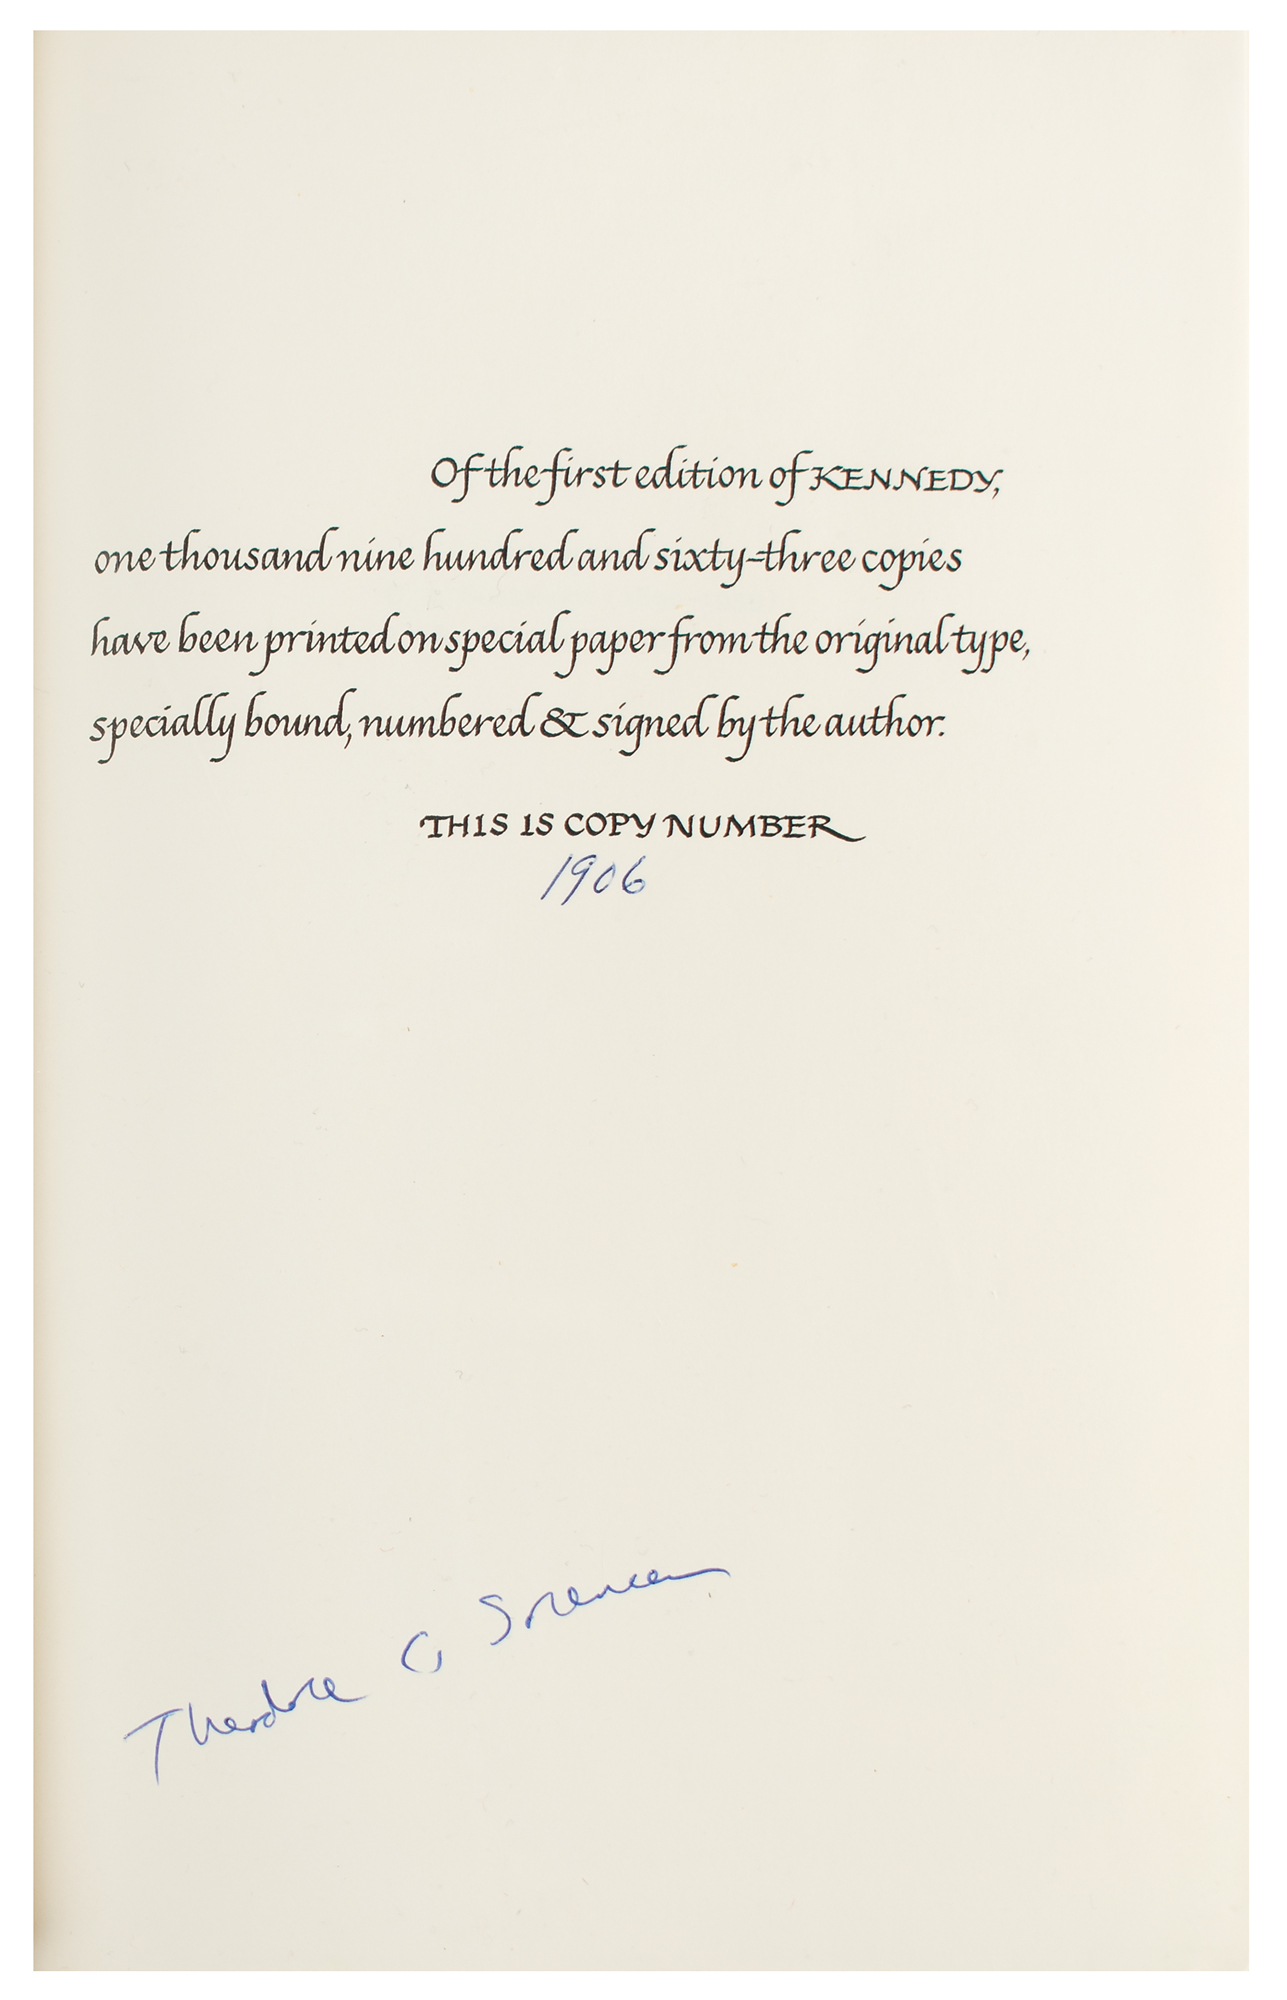 Of the first edition of KENNEDY,
one thousand nine hundred and sixty-three copies
have been printed on special paper from the original type,
specially bound, numbered & signed by the author.
THIS IS COPY NUMBER
1906
Theodore C Sorensen